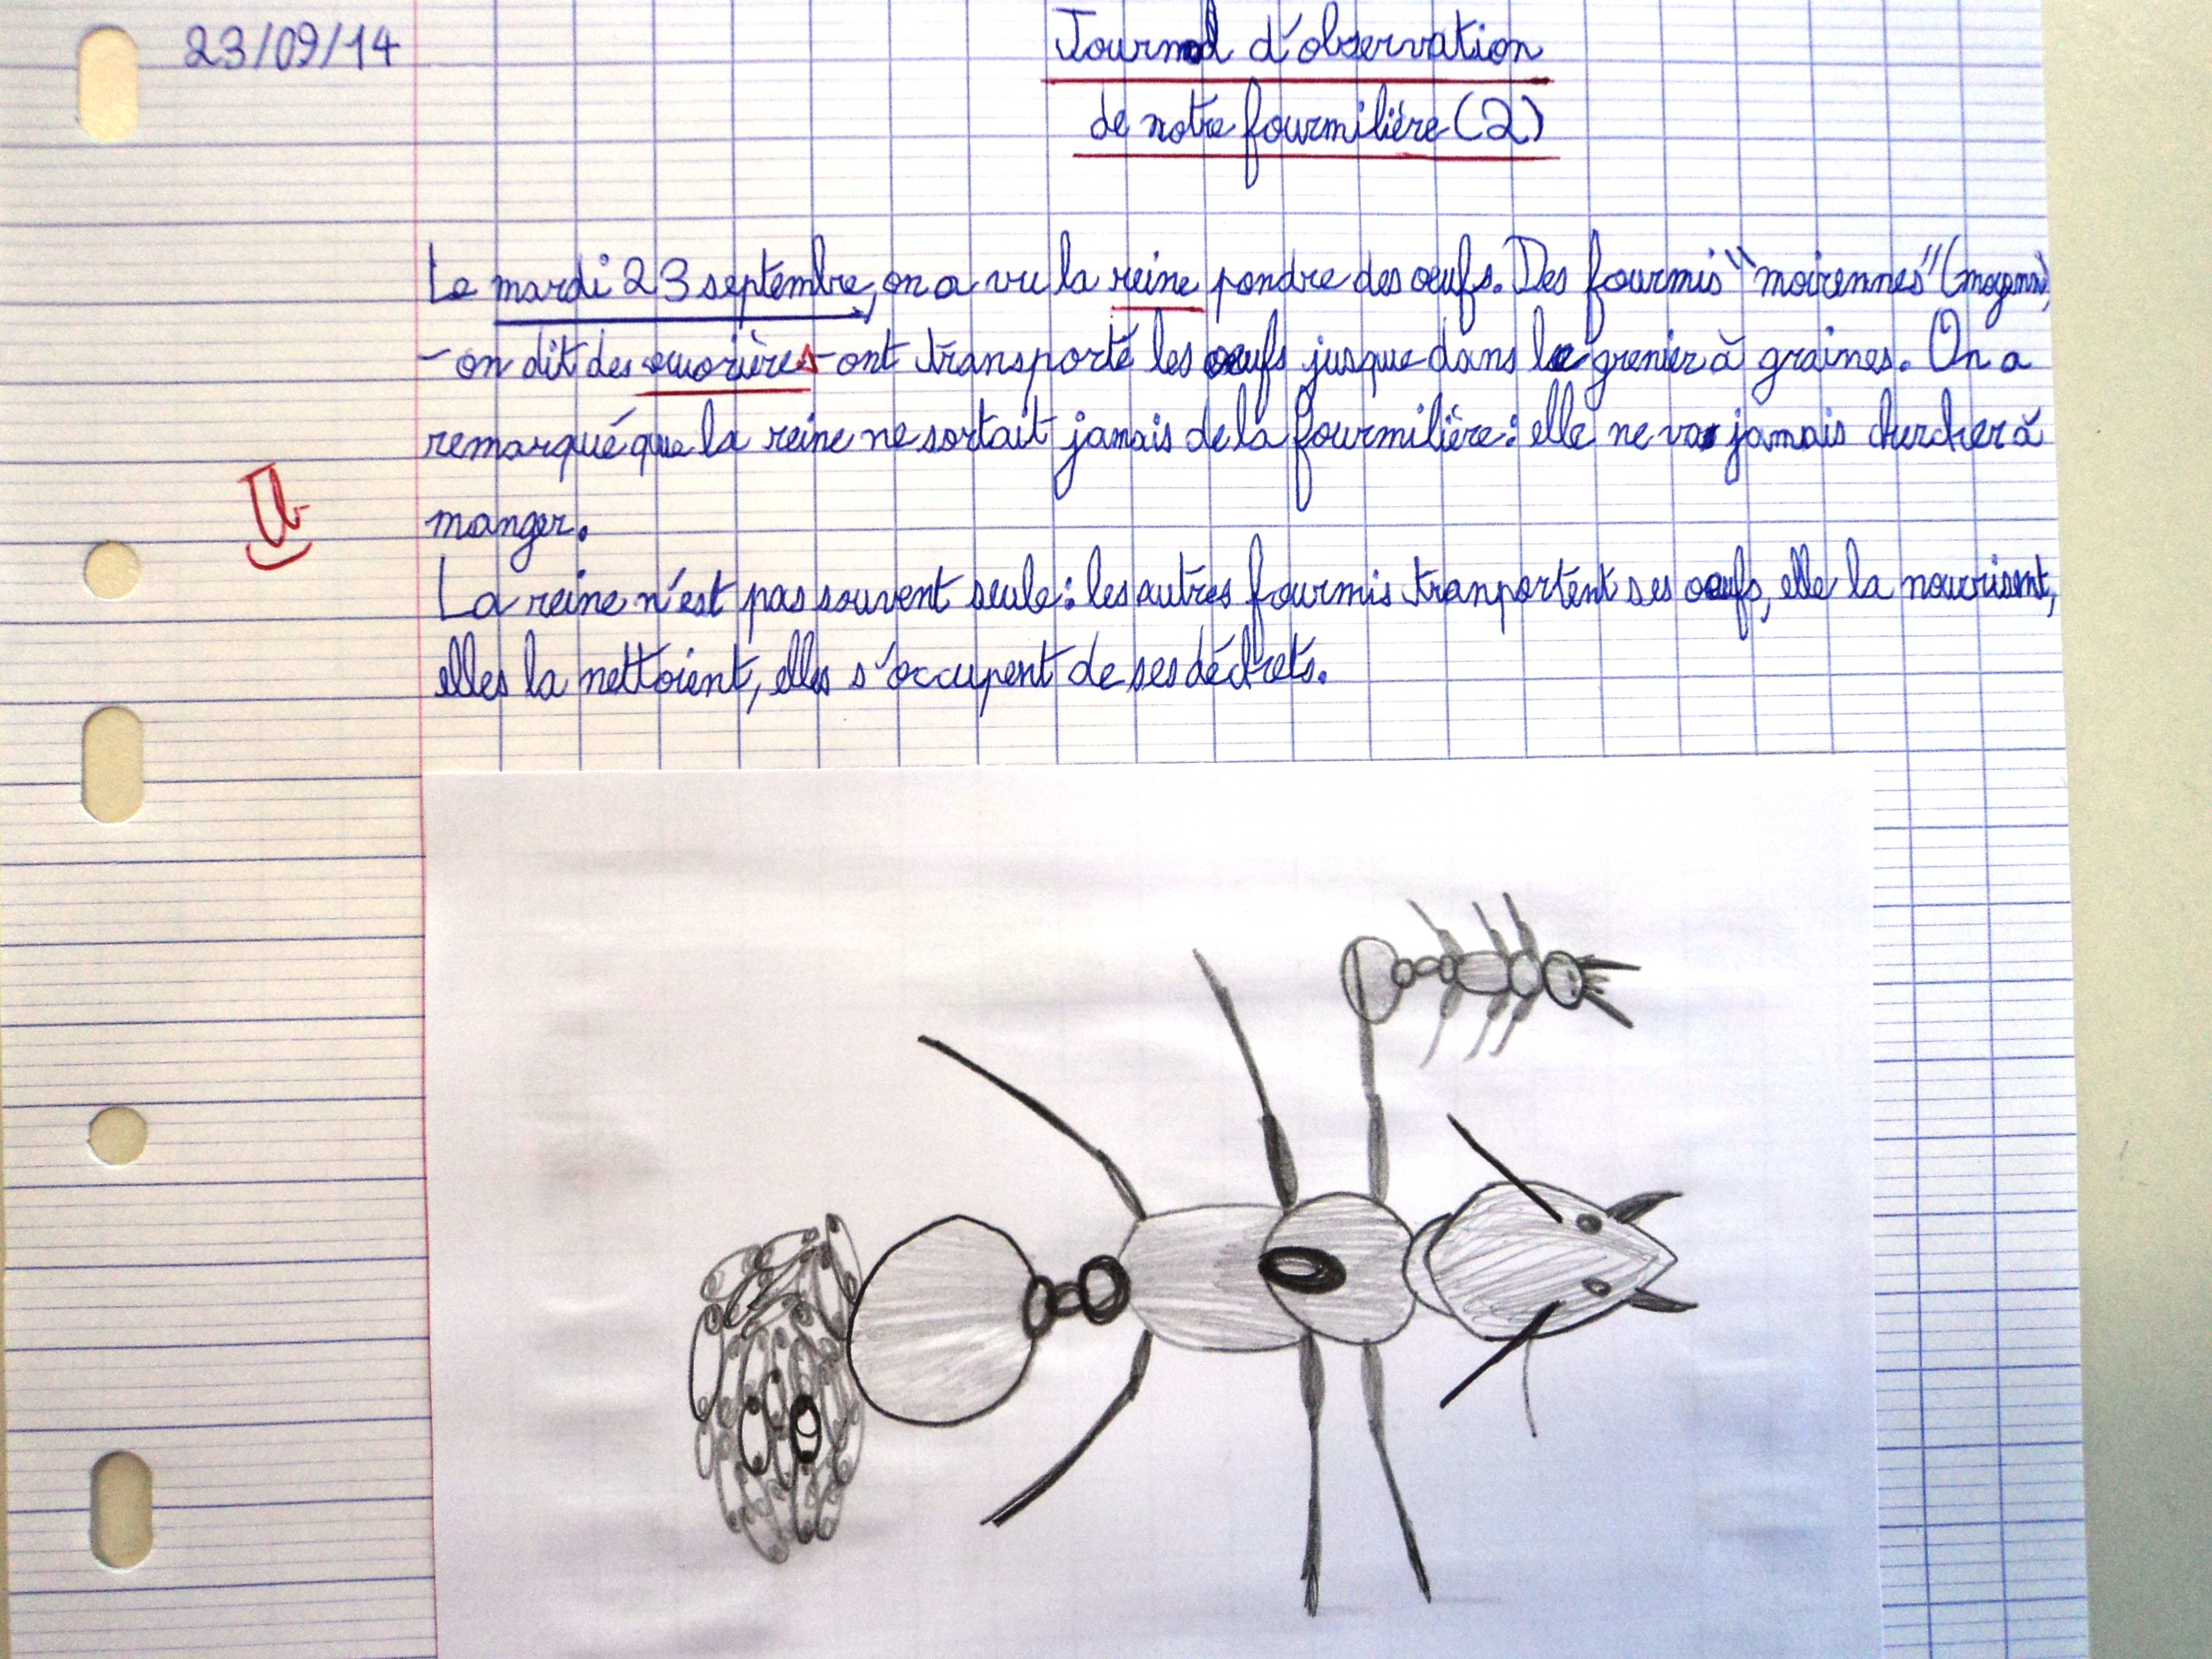 23/09/14
Journal d'observation
de notre fourmilière (2)
Le mardi 23 septembre, on a vu la reine pondre des œufs. Des fourmis "moirennes" (moyenne)
- on dit des ouvrières - ont transporté les œufs jusque dans le grenier à graines. On a
remarqué que la reine ne sortait jamais de la fourmilière : elle ne va jamais chercher à
manger.
La reine n'est pas souvent seule : les autres fourmis tranportent ses œufs, elle la nourrisent,
elles la nettoient, elles s'occupent de ses déchets.